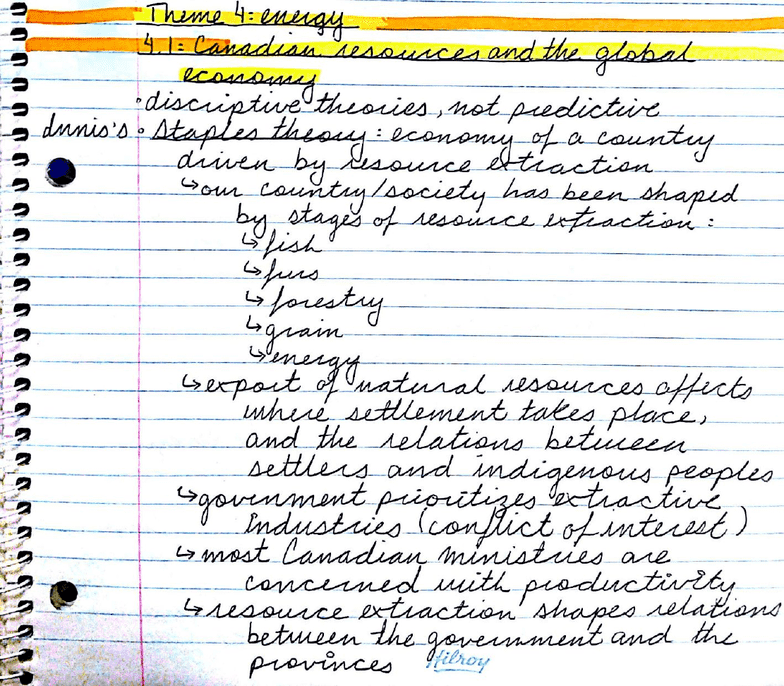 Theme 4: energy
4.1: Canadian resources and the global
economy
• discriptive theories, not predictive
Innis's • Staples theory: economy of a country
driven by resource extraction
↳ our country/society has been shaped
by stages of resource extraction:
↳ fish
↳ furs
↳ forestry
↳ grain
↳ energy
↳ export of natural resources affects
where settlement takes place,
and the relations between
settlers and indigenous peoples
↳ government prioritizes extractive
industries (conflict of interest)
↳ most Canadian ministries are
concerned with productivity
↳ resource extraction shapes relations
between the government and the
provinces Hilroy